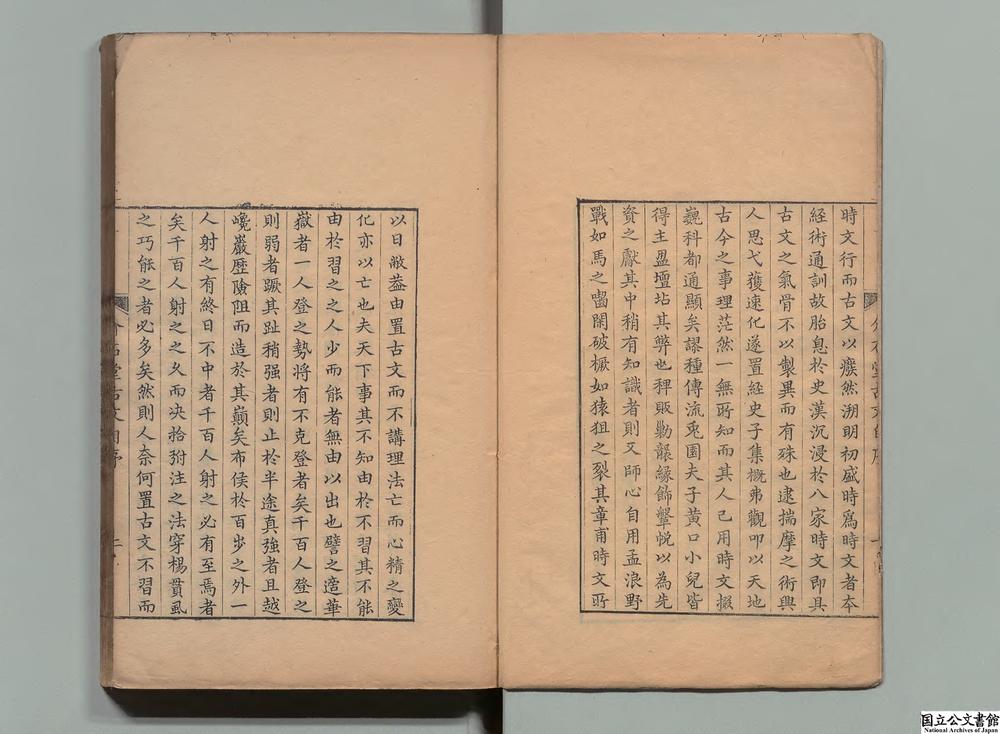 時文行而古文以癈然溯明初盛時爲時文者夲
經術通訓故胎息於史漢沉浸於八家時文即具
古文之氣骨不以製異而有殊也逮揣摩之術興
人思弋獲速化遂置經史子集概弗觀叩以天地
古今之事理茫然一無所知而其人已用時文掇
巍科都通顯矣謬種傳流兎園夫子黃口小兒皆
得主盟壇坫其弊也稗販勦襲緣飾鞶帨以為先
資之獻其中稍有知識者則又師心自用孟浪野
戰如馬之齧闌破橛如猿狙之裂其章甫時文所
以日敝葢由置古文而不講理法亡而心精之變
化亦以亡也夫天下事其不知由於不習其不能
由於習之之人少而能者無由以出也譬之適華
嶽者一人登之勢將有不克登者矣千百人登之
則弱者蹶其趾稍强者則止於半途真強者且越
巉巖歷險阻而造於其巔矣布侯於百步之外一
人射之有終日不中者千百人射之必有至焉者
矣千百人射之之久而决拾弣注之法穿楊貫虱
之巧能之者必多矣然則人奈何置古文不習而
国立公文書館
National Archives of Japan